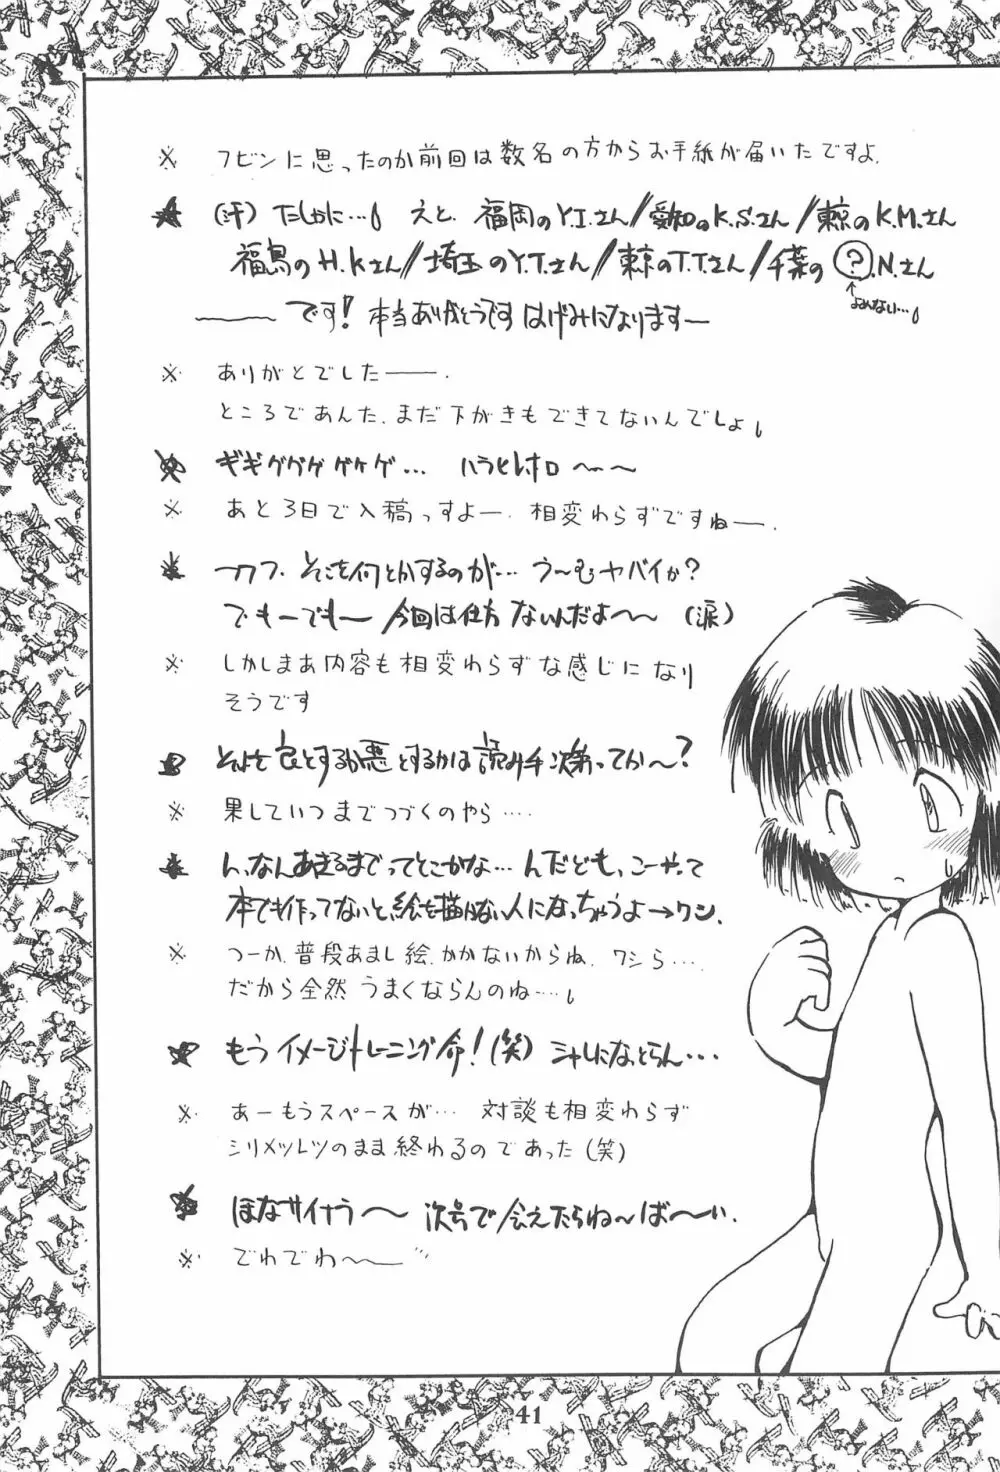 ※ フビンに思ったのか前回は数名の方からお手紙が届いたですよ.
★ (汗) たしかに…! えと. 福岡のY.I.さん//愛知のK.S.さん//東京のK.M.さん
福島のH.Kさん//埼玉のY.T.さん//東京のT.T.さん//千葉の?.N.さん
↑よめない…!
――です! 本当ありがとうです はげみになりますー
※ ありがとでしたー―.
ところであんた、まだ下がきもできてないんでしょ!
★ ギギゲゲゲゲケゲ… ハラヒレホロ〜〜
※ あと3日で入稿っすよー. 相変わらずですねー.
★ フフフ. そこを何とかするのが… う〜むヤバイか?
でもーでもー 今回は仕方ないんだよ〜〜 (涙)
※ しかしまあ内容も相変わらずな感じになり
そうです
★ それを良とするか悪とするかは読み手次第ってか〜?
※ 果していつまでつづくのやら….
★ ん、なんあきるまでってとこかな… んだども、こーやって
本でも作ってないと、絵を描けない人になっちゃうよ→ワシ.
※ つーか、普段あまし絵、かかないからね、ワシら….
だから全然うまくならんのね…!
★ もうイメージトレーニング命!(笑) シャレになっとらん…
※ あーもうスペースが… 対談も相変わらず
シリメツレツのまま終わるのであった(笑)
★ ほなサイナラ〜 次号で会えたらね〜ば〜い.
※ でわでわ〜―
41